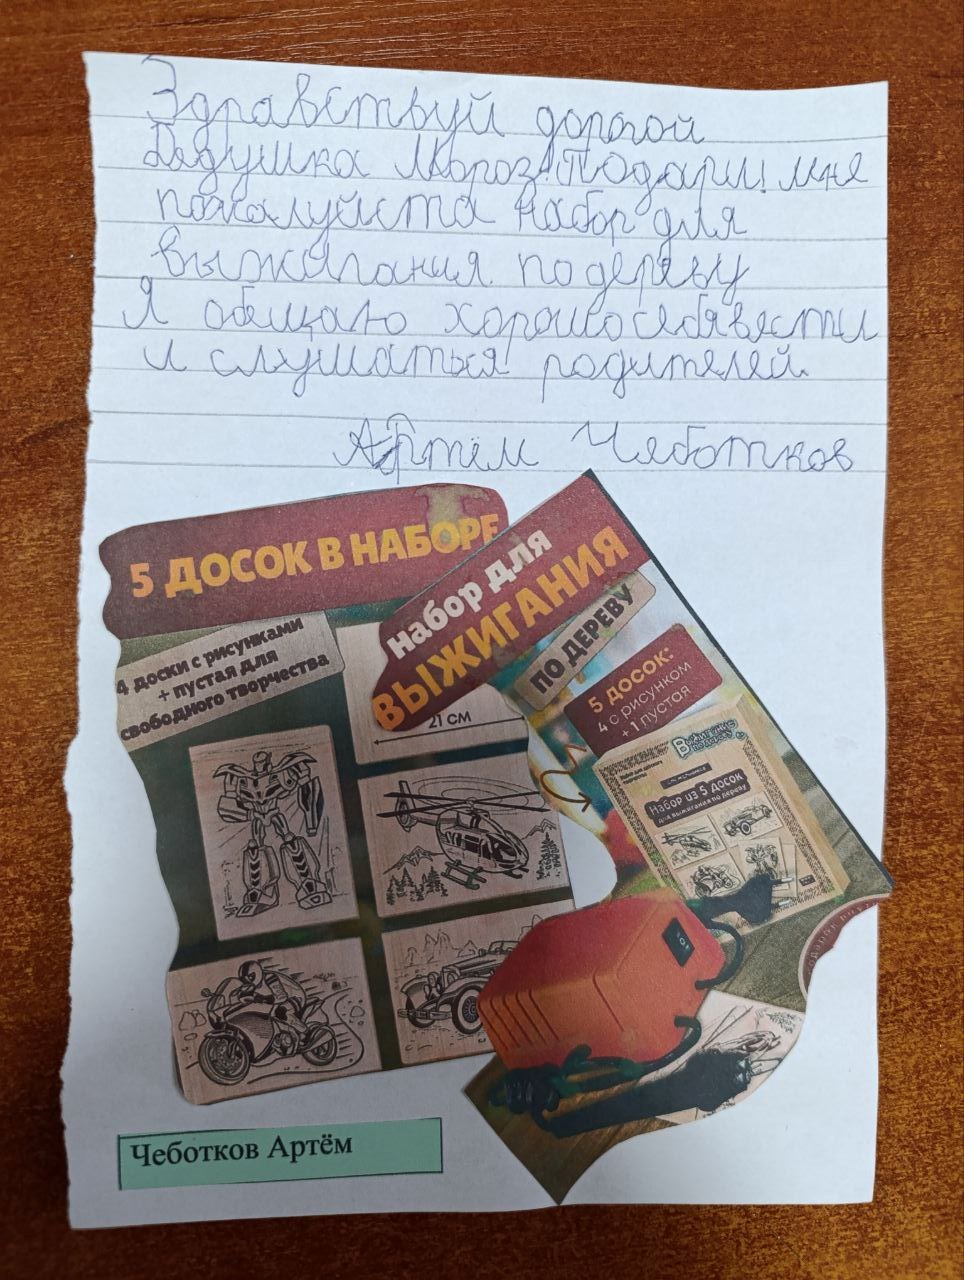 Здравствуй дорогой
Дедушка Мороз! Подари! мне
пожалуйста набор для
выжигания по дереву
Я обещаю хорошо себя вести
и слушаться родителей.
Артём Чеботков
5 ДОСОК В НАБОРЕ
4 доски с рисунками
+ пустая для
свободного творчества
21 см
набор для
ВЫЖИГАНИЯ
ПО ДЕРЕВУ
5 ДОСОК:
4 с рисунком
+ 1 пустая
Выжигание
по дереву
Набор из 5 досок
для выжигания по дереву
Чеботков Артём